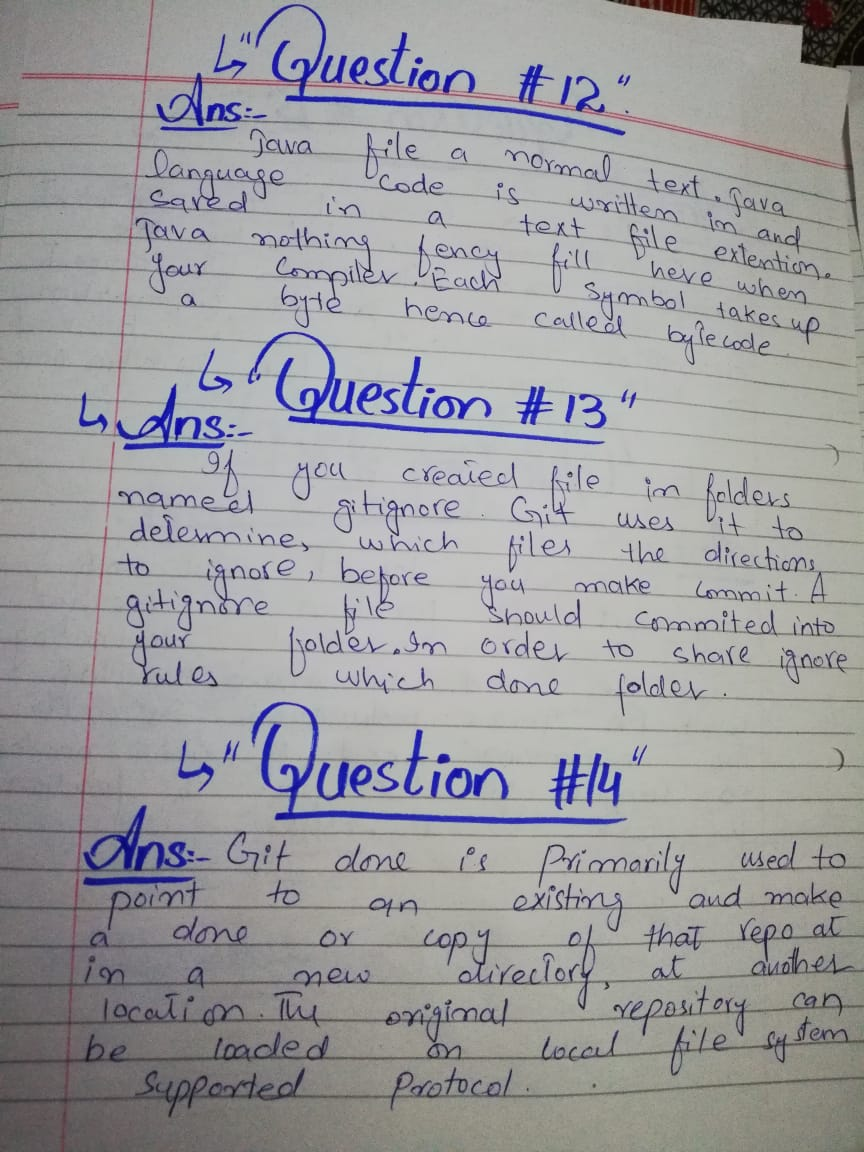 ↳ "Question #12".
Ans:-
Java file a normal text. Java
language code is written in and
saved in a text file extention.
Java nothing fency fill here when
your Compiler. Each symbol takes up
a byte hence called bytecode.
↳ "Question #13"
↳ Ans:-
If you created file in folders
named gitignore. Git uses it to
determine, which files the directions,
to ignore, before you make commit. A
gitignore file should commited into
your folder. In order to share ignore
rules which done folder.
↳ "Question #14"
Ans:- Git done is Primarily used to
point to an existing and make
a done or copy of that repo at
in a new directory, at another
location. The original repository can
be loaded on local file system
Supported Protocol.